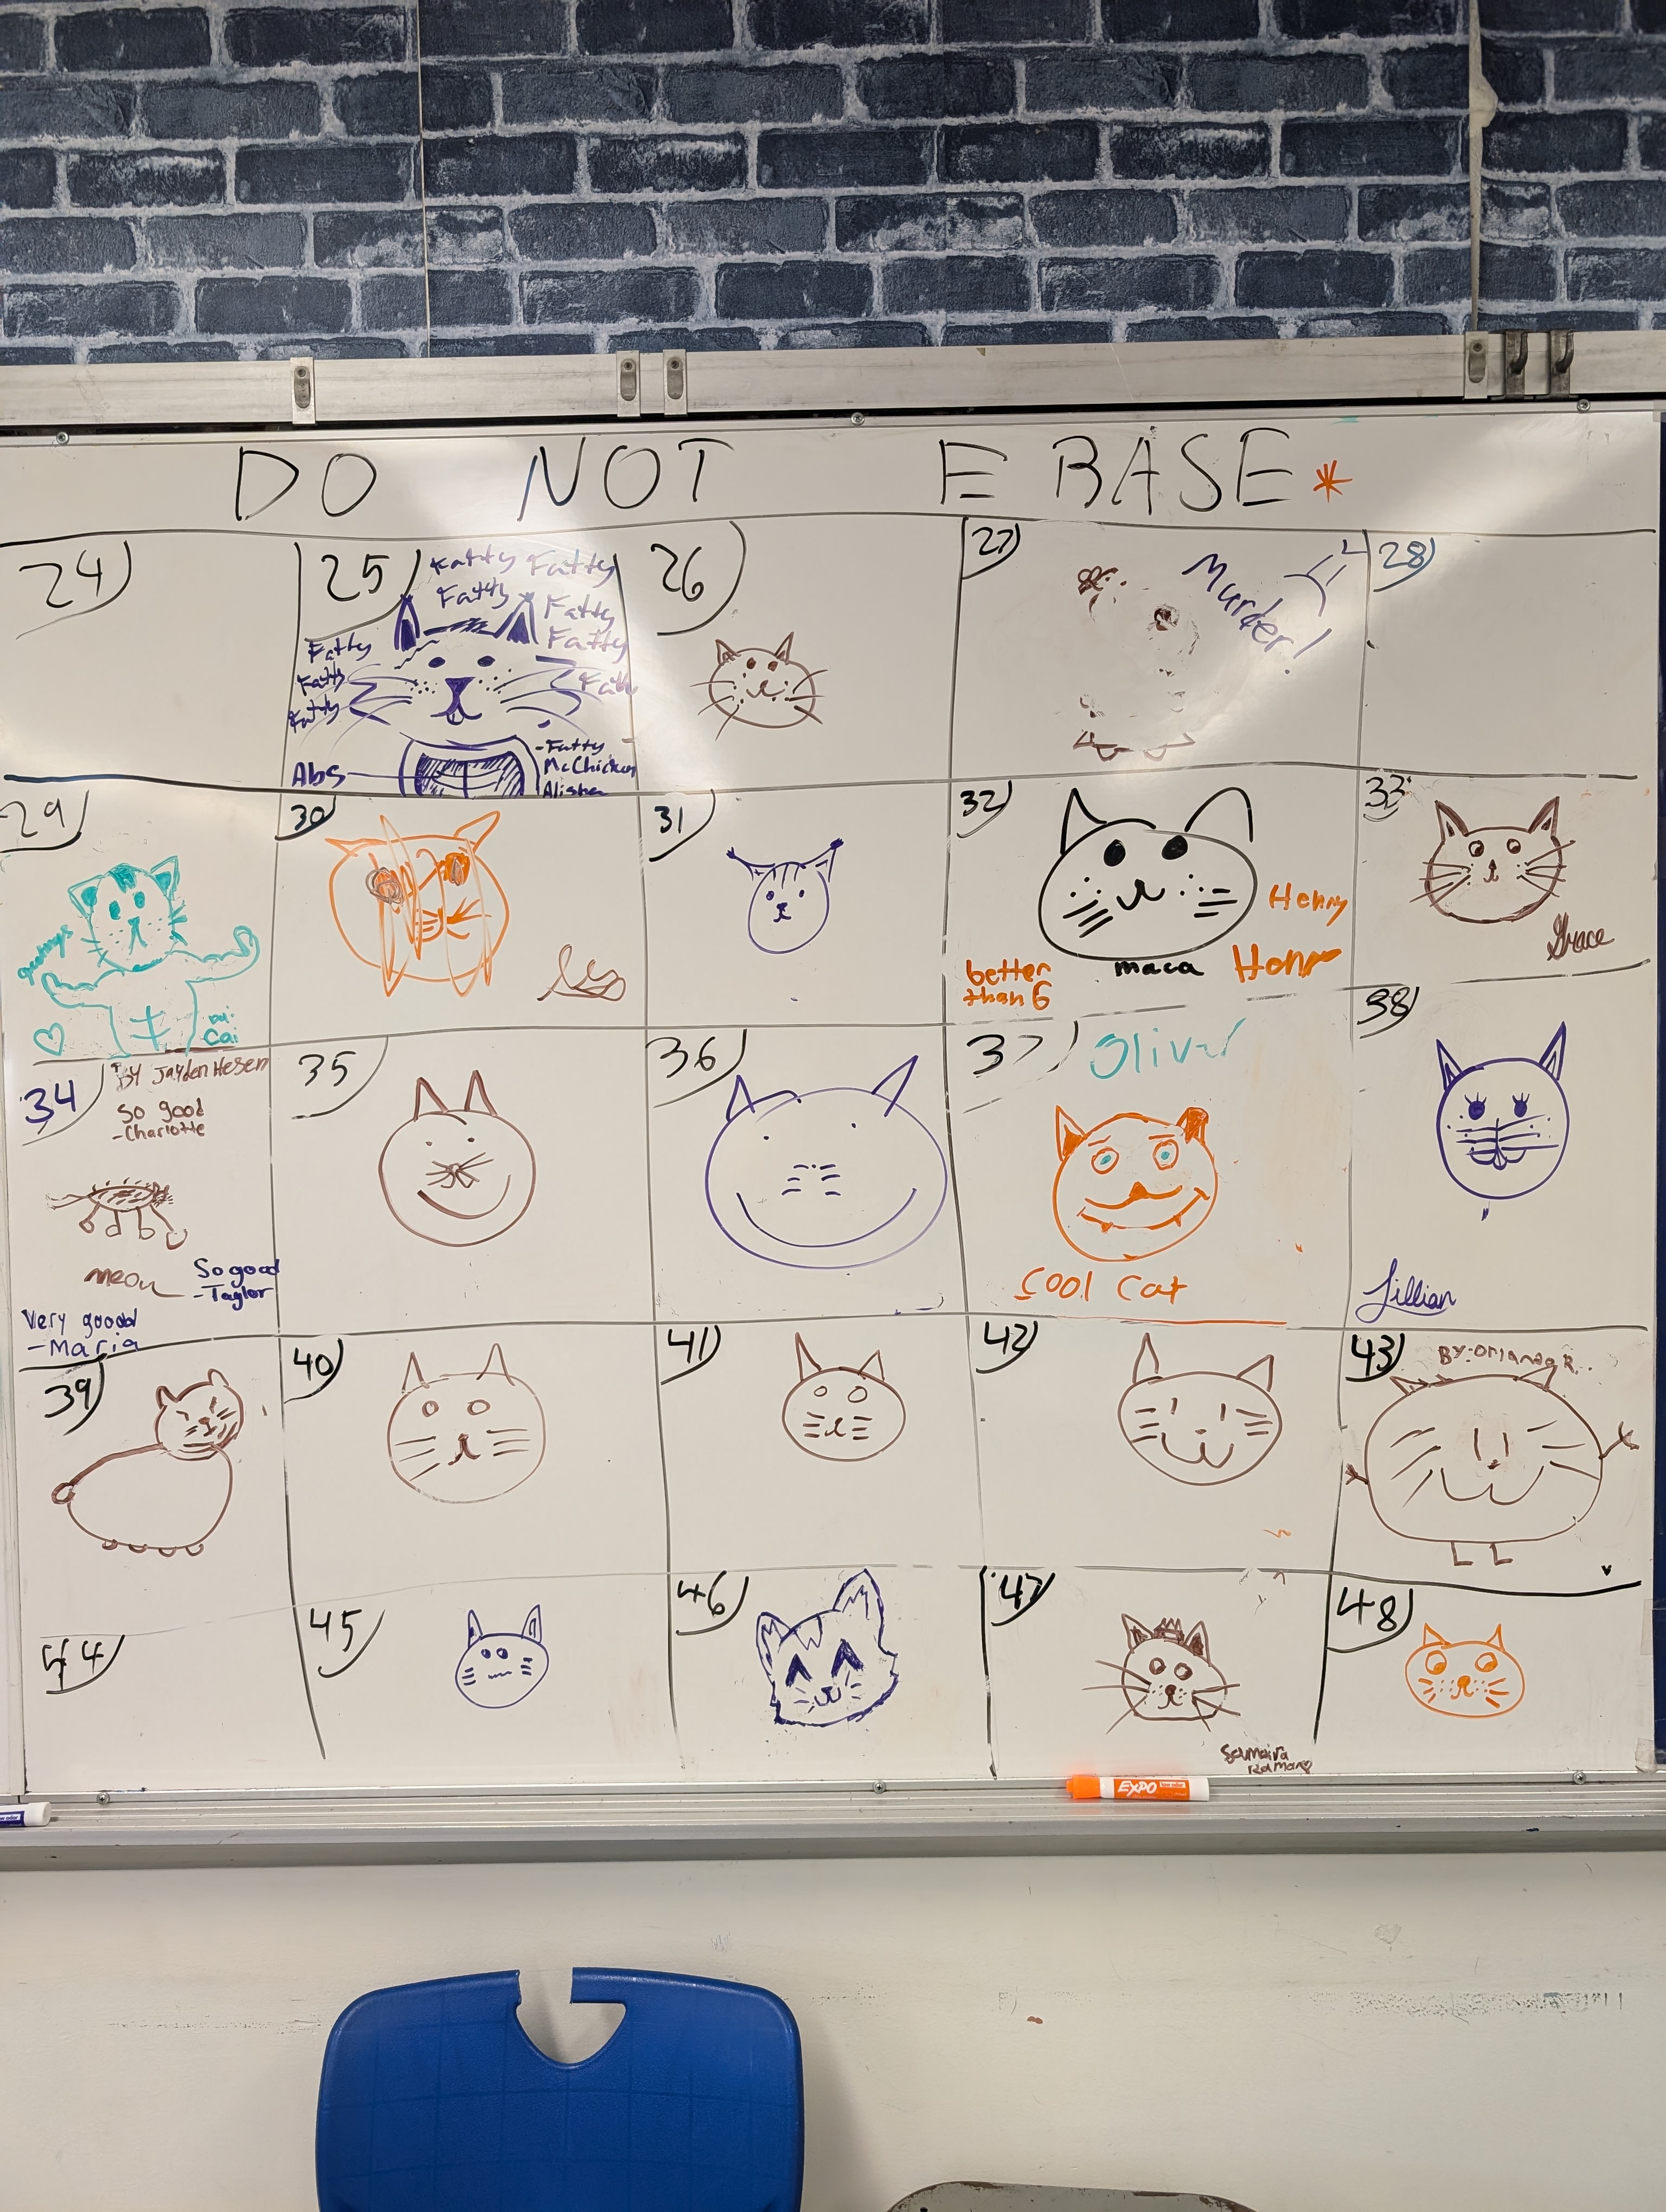 DO NOT E BASE*
24)
25)
Fatty Fatty
Fatty
Fatty
Fatty
Fatty
Fatty
Fatty
Fatty
Abs
-Fatty
McChicken
Alisha
26)
27)
Murder!
28)
29)
greetings
Cai
30)
31)
32)
Henny
better
than 6
maca
33)
Grace
34)
BY Jayden Hesen
So good
-Charlotte
meow
So good
-Taylor
Very goood
-Maria
35)
36)
37)
Oliver
Cool Cat
38)
Jillian
39)
40)
41)
42)
43)
BY:Orlando R.
44)
45)
46)
47)
48)
EXPO